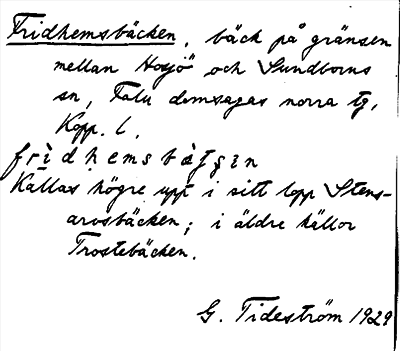 Fridhemsbäcken, bäck på gränsen
mellan Hosjö och Sundborns
sn, Falu domsagas norra tg,
Kopp. l.
frìdhemsbàtʃin
Kallas högre upp i sitt lopp Stens-
arvsbäcken; i äldre källor
Trostebäcken.
G. Tideström 1929